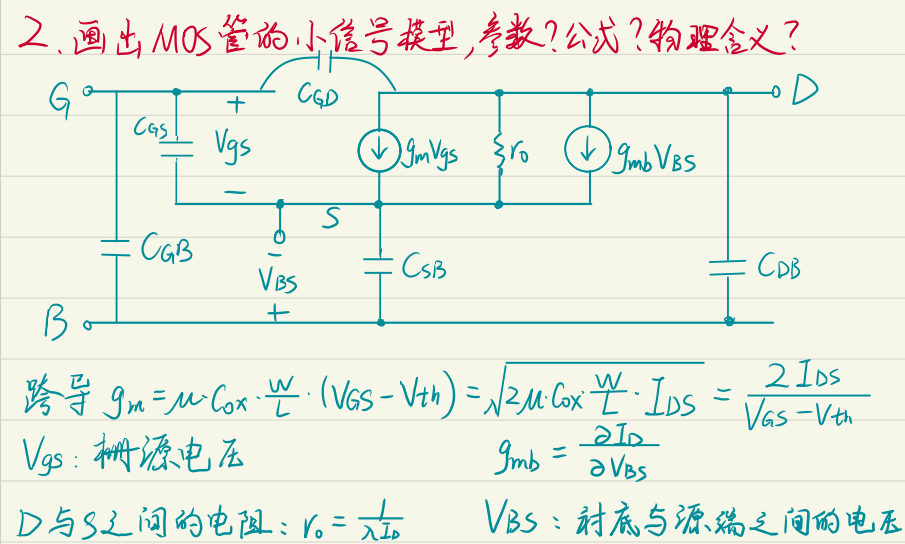 2、画出MOS管的小信号模型,参数?公式?物理含义?
CGD
G
D
+
CGS
Vgs
gmVgs
r₀
gmbVBS
−
S
CGB
−
VBS
+
CSB
CDB
B
跨导 gm = μ·Cox·W/L·(VGS−Vth) = √(2μ·Cox·W/L·IDS) = 2IDS/(VGS−Vth)
Vgs:栅源电压 gmb = ∂ID/∂VBS
D与S之间的电阻:r₀ = 1/λID VBS:衬底与源端之间的电压